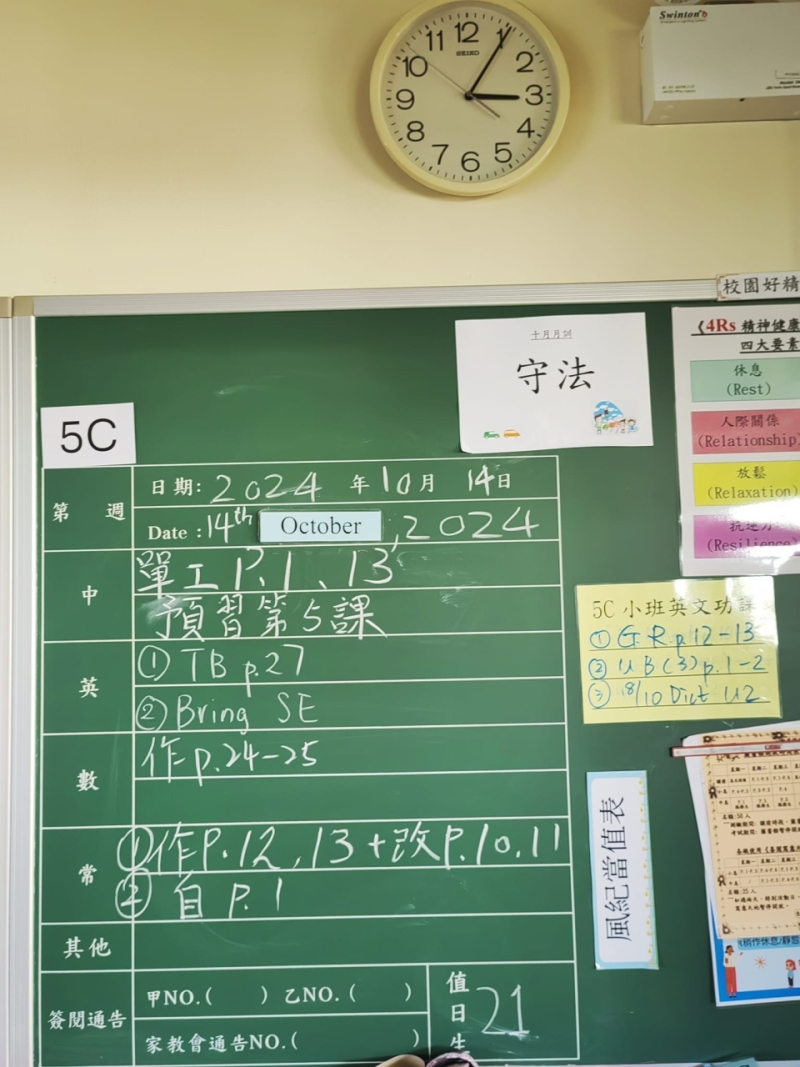 12
1
2
3
4
5
6
7
8
9
10
11
SEIKO
Swinton
校園好精
十月月訓
守法
《4Rs 精神健康
四大要素
休息
(Rest)
人際關係
(Relationship)
放鬆
(Relaxation)
抗逆力
(Resilience)
5C
第 週
日期: 2024 年 10 月 14 日
Date : 14th October , 2024
中
單工 P.1、13
預習第5課
英
① TB p.27
② Bring SE
數
作 p.24-25
常
① 作P.12,13+改P.10,11
② 自 P.1
其他
簽閱通告
甲NO.( ) 乙NO.( )
家教會通告NO.( )
值日生 21
5C 小班英文功課
① G.R.p.12-13
② UB(3)p.1-2
③ 18/10 Dict U2
風紀當值表